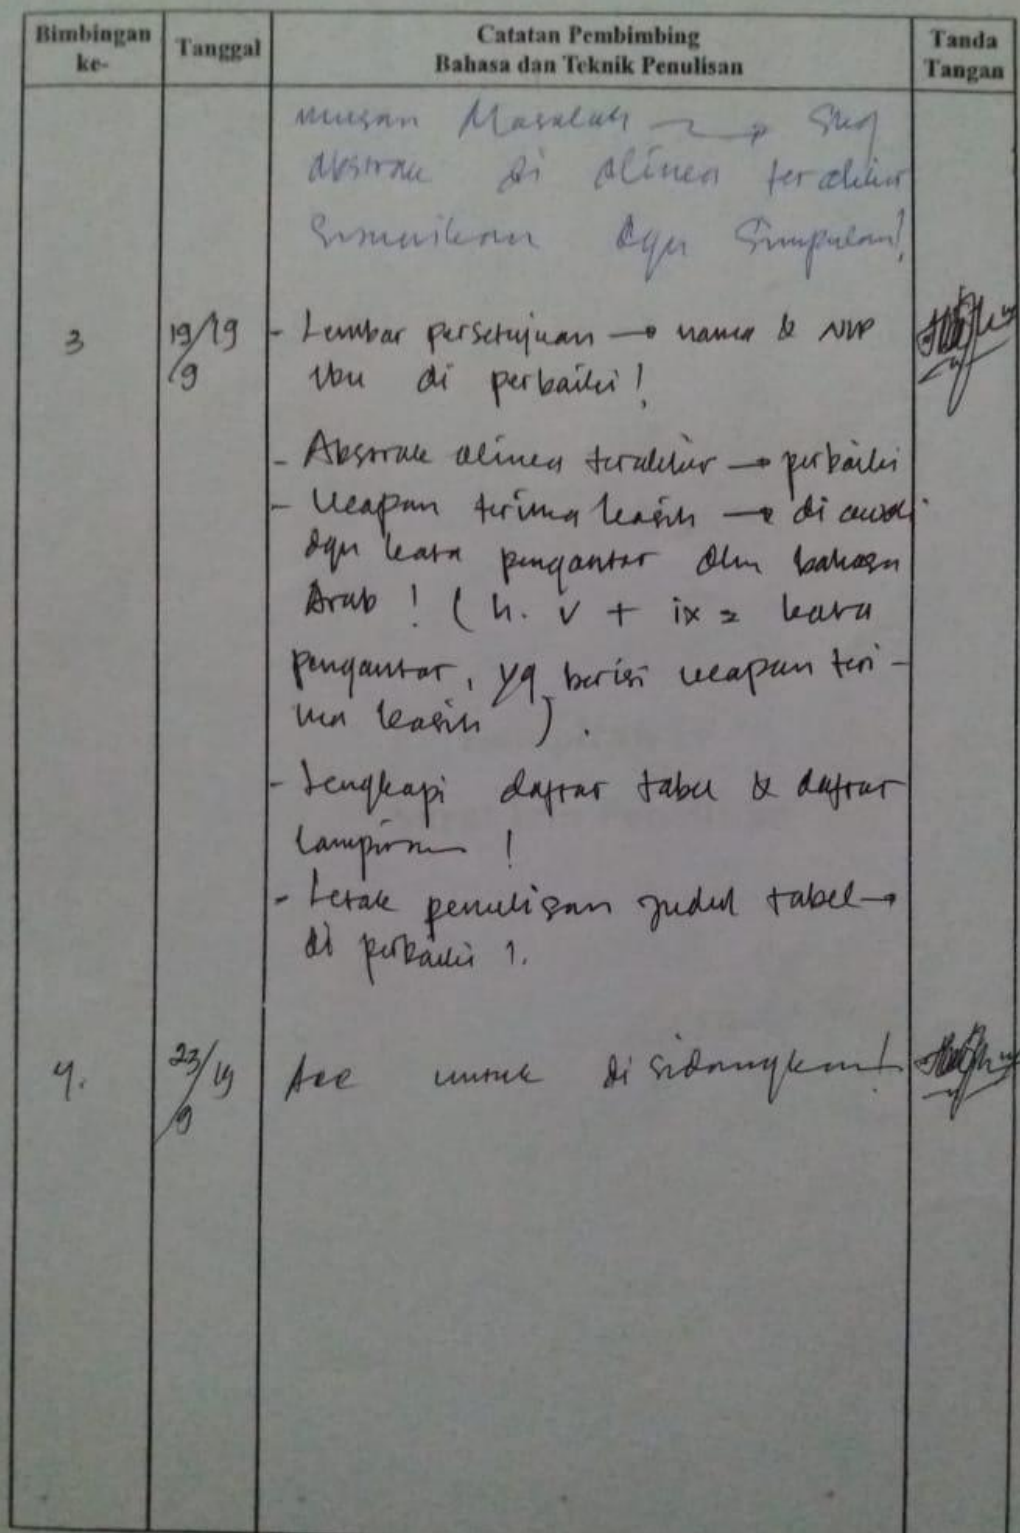 Bimbingan ke-
Tanggal
Catatan Pembimbing
Bahasa dan Teknik Penulisan
Tanda Tangan
musan Masalah →
abstrak di alinea terakhir
sesuaikan dgn Simpulan!
3
19/19
/9
- Lembar persetujuan → nama & NIP
Ibu di perbaiki!
- Abstrak alinea terakhir → perbaiki
- Ucapan terima kasih → di awali
dgn kata pengantar dlm bahasa
Arab ! ( h. v + ix = kata
pengantar, yg berisi ucapan teri-
ma kasih ).
- Lengkapi daftar tabel & daftar
lampiran !
- Letak penulisan judul tabel →
di perbaiki !.
4.
23/19
/9
Acc untuk di sidangkan!